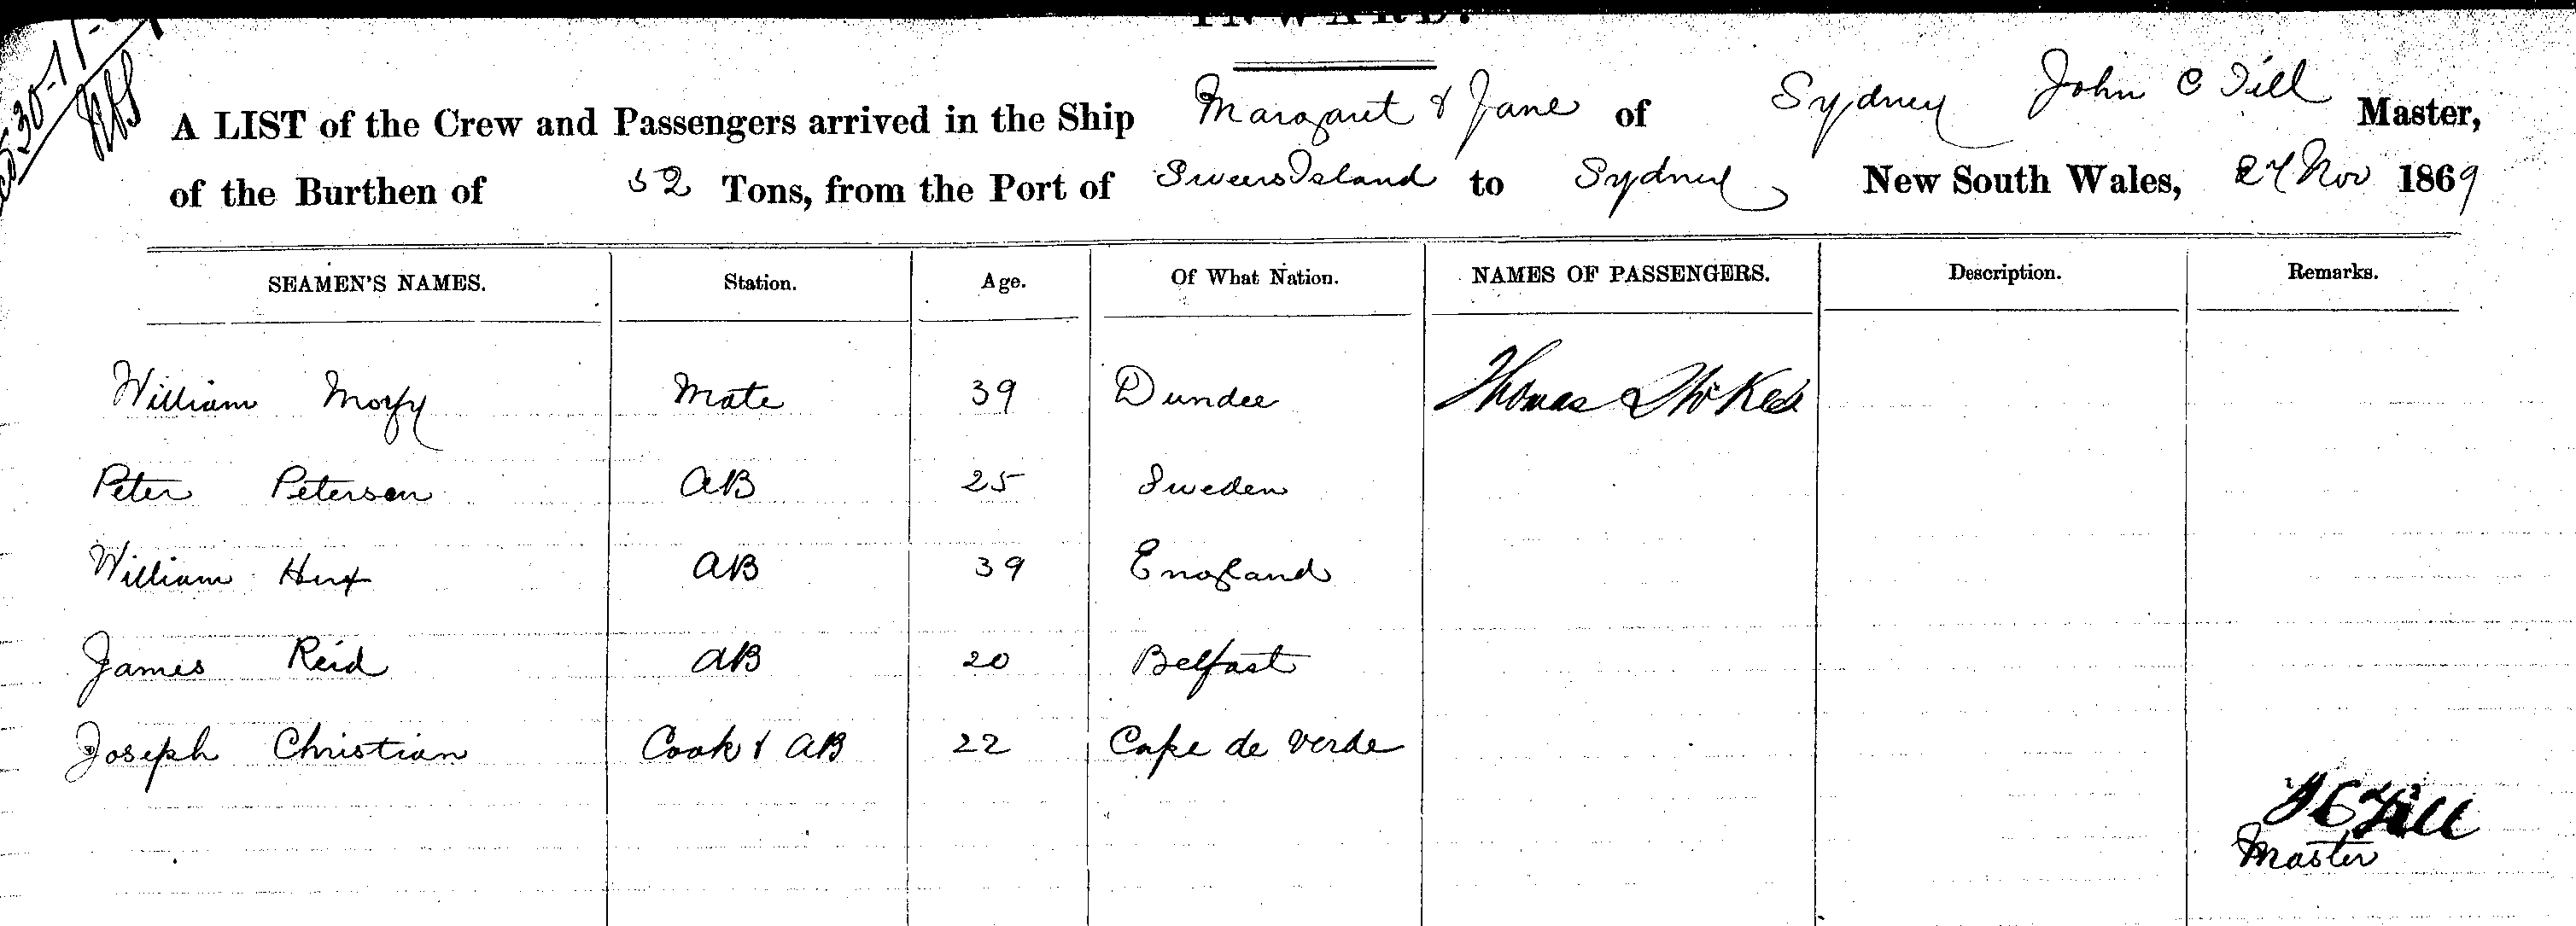 INWARD.
A LIST of the Crew and Passengers arrived in the Ship Margaret & Jane of Sydney John C Till Master,
of the Burthen of 52 Tons, from the Port of Sweers Island to Sydney New South Wales, 27 Nov 1869
SEAMEN'S NAMES. Station. Age. Of What Nation. NAMES OF PASSENGERS. Description. Remarks.
William Morfy Mate 39 Dundee Thomas Stokes
Peter Peterson AB 25 Sweden
William AB 39 England
James Reid AB 20 Belfast
Joseph Christian Cook & AB 22 Cape de Verde
J C Till
Master